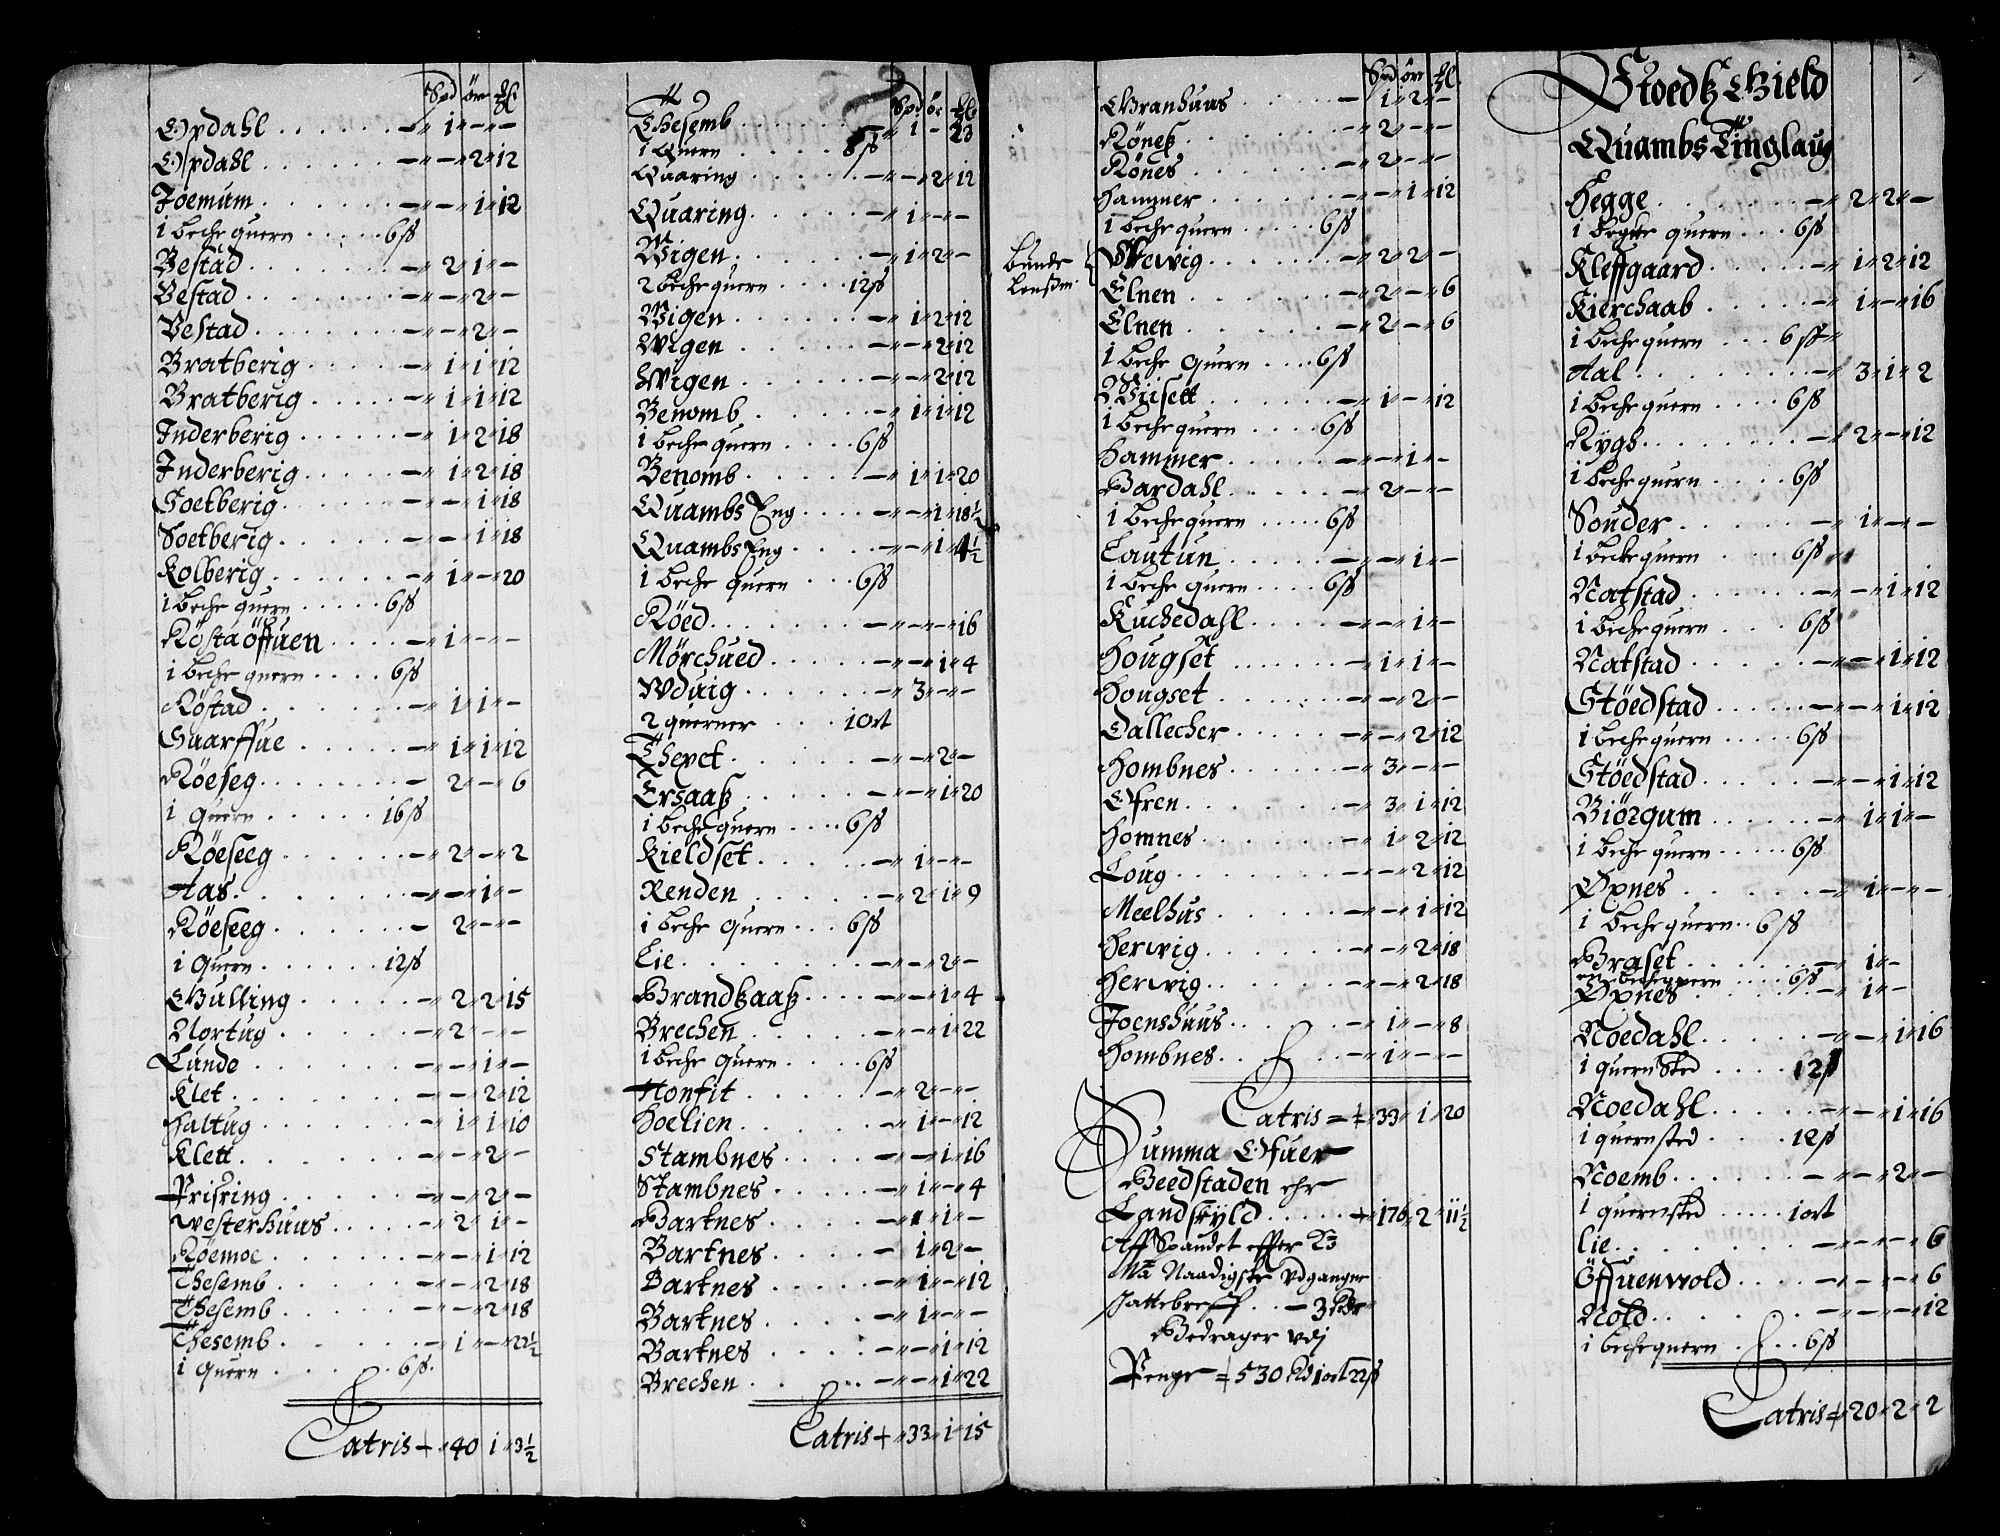 Spd ör ₰l
Opdahl . . . . . . –"1"–"–
Opdahl . . . . . –"–"2"12
Joemum . . . . . –"–"1"12
1 beche quern . . . . 6 ß
Bestad . . . . . . –"2"1"–
Bestad . . . . . . –"–"2"–
Bestad . . . . . . –"–"2"–
Bratberig . . . . –"1"1"12
Bratberig . . . . –"1"1"12
Inderberig . . . . –"1"2"18
Inderberig . . . . –"1"2"18
Soetberig . . . . –"–"1"18
Soetberig . . . . –"–"1"18
Kolberig . . . . . –"1"–"20
1 beche quern . . . . . 6 ß
Röstaöffuen . . . –"1"–"–
1 beche quern . . . . 6 ß
Röstad . . . . . . –"1"1"–
Guarffue . . . . . –"1"1"12
Röeseg . . . . . . –"2"–"6
1 Quern . . . . . . 16 ß
Röeseeg . . . . . –"2"–"2
Aas . . . . . . . –"–"1"–
Röeseeg . . . . . – 2"–"–
1 Quern . . . . . . 12 ß
Gulling . . . . . –"2"2"15
Nortug . . . . . –"2"–"–
Lunde . . . . . . –"–"1"–
Klet . . . . . . –"–"2"12
Haltug . . . . . –"1"1"10
Klett . . . . . . –"–"2"–
Prisring . . . . –"–"2"–
Westerhuus . . . . –"2"1"–
Röemoe . . . . . –"–"1"12
Thesemb . . . . . –"–"2"18
Thesemb . . . . . –"–"2"18
Thesemb . . . . . –"1"–"22½
1 Quern . . . . . . 6 ß
Latris – "40"1"3½
Spd ör ₰l
Thesemb . . . . . –"1"–"23
1 Quern . . . . . 8 ß
Quaring . . . . . –"–"2"12
Quaring . . . . . –"1"–"–
Wigen . . . . . . –"1"2"–
2 beche quern . . . . 12 ß
Wigen . . . . . . –"1"2"12
Wigen . . . . . . –"–"2"12
Wigen . . . . . . –"–"2"12
Benomb . . . . . –"1"1"12
1 beche quern . . . . 6 ß
Benomb . . . . . –"1"1"20
Quambs Eng . . . . –"–"1"18½
Quambs Eng . . . . –"–"1"4½
1 beche quern . . . 6 ß
Röed . . . . . . –"–"–"16
Mörchued . . . . –"–"1"4
Wduig . . . . . . –"3"–"–
2 querner . . . . 1 ort
Thexet . . . . . –"–"2"–
Ersaaß . . . . . –"–"1"20
1 beche quern . . . . 6 ß
Kieldset . . . . . –"1"–"–
Renden . . . . . –"2"1"9
1 beche quern . . . 6 ß
Lie . . . . . . . –"–"2"–
Brandtzaaß . . . . –"–"1"4
Brechen . . . . . –"–"1"22
1 beche quern . . . . 6 ß
Honfit . . . . . –"2"–"–
Hoelien . . . . . –"1"–"12
Stambnes . . . . –"–"1"16
Stambnes . . . . –"1"–"4
Bartnes . . . . . –"1"1"–
Bartnes . . . . . – 1"2"–
Bartnes . . . . . –"1"–"12
Bartnes . . . . . –"1"–"–
Bartnes . . . . . –"–"1"12
Brechen . . . . . –"–"1"22
Latris + "33"1"15
Spd ör ₰l
Granhuus . . . . – "1"2"–
Rönetz . . . . . –"2"–"–
Rönes . . . . . . –"2"–"–
Hammer . . . . . –"–"1"12
1 beche quern . . . . 6 ß
Bunde
Lensm.
Wewig . . . . . –"2"2"–
Elnen . . . . . . –"2"–"6
Elnen . . . . . . –"2"–"6
1 beche Quern . . . . 6 ß
Wiisett . . . . . –"1"–"12
1 beche quern . . . . 6 ß
Hammer . . . . . –"–"1"–
Bardahl . . . . . –"2"–"–
1 beche quern . . . . . 6 ß
Lautun . . . . . –"–"1"–
1 beche quern . . . . 6 ß
Kuchedahl . . . . –"–"1"–
Hougset . . . . . –"1"1"–
Hougset . . . . . –"–"2"–
Dallecher . . . . –"–"2"12
Hombnes . . . . . –"3"–"–
Ofren . . . . . . –"3"1"12
Homnes . . . . . –"1"2"12
Loug . . . . . . –"–"2"12
Meelhus . . . . . –"–"1"12
Herwig . . . . . –"–"2"18
Herwig . . . . . –"–"2"18
Joenshuus . . . . –"1"–"8
Hombnes . . . . . –"1"–"–
Latris = "33"1"20
Summa Ofuer
Beedstaden ehr
Landskyld . . . . "176"2"11½
Aff Spandet effter
Naadigste Vdganger
schattebreff . . – 3
Bedrager vdj
Penge = 530 Rd 1 ort 22 ß
Stoedtz Gield
Quambs Tinglaug
Hegge . . . . . . –"2"2"–
1 begche quern . . . 6 ß
Kleffgaard . . . . –"1"2"12
Kierchaab . . . . –"1"–"16
1 beche quern . . . 6 ß
Aal . . . . . . . –"3"1"2
1 beche quern . . . . 6 ß
Rygh . . . . . . –"2"–"12
1 beche quern . . . . 6 ß
Sonder . . . . . –"1"–"–
1 becke quern . . . . 6 ß
Natstad . . . . . –"–"1"12
1 beche quern . . . . 6 ß
Natstad . . . . . –"–"1"12
Stöedstad . . . . –"–"1"12
1 beche quern . . . . . 6 ß
Stöedstad . . . . –"–"1"12
Biörgum . . . . . –"1"1"–
1 beche quern . . . . . 6 ß
Øxnes . . . . . . –"1"–"–
1 beche quern . . 6 ß
Braset . . . . . –"1"–
en bechequern . . . . 6 ß
Øxnes . . . . . . –"1"–
Noedahl . . . . . –"–"1"16
1 quern Sted . . . . 12 ß
Noedahl . . . . . –"–"1"16
1 quernsted . . . . 12 ß
Noemb . . . . . . –"–"2"–
1 quernsted . . . . 1 ort
Lie . . . . . . . –"–"–"6
Öffuenwold . . . . –"–"–"6
Nold . . . . . . –"–"–"12
1 bechequern . . . . 6 ß
Latris "20"2"2